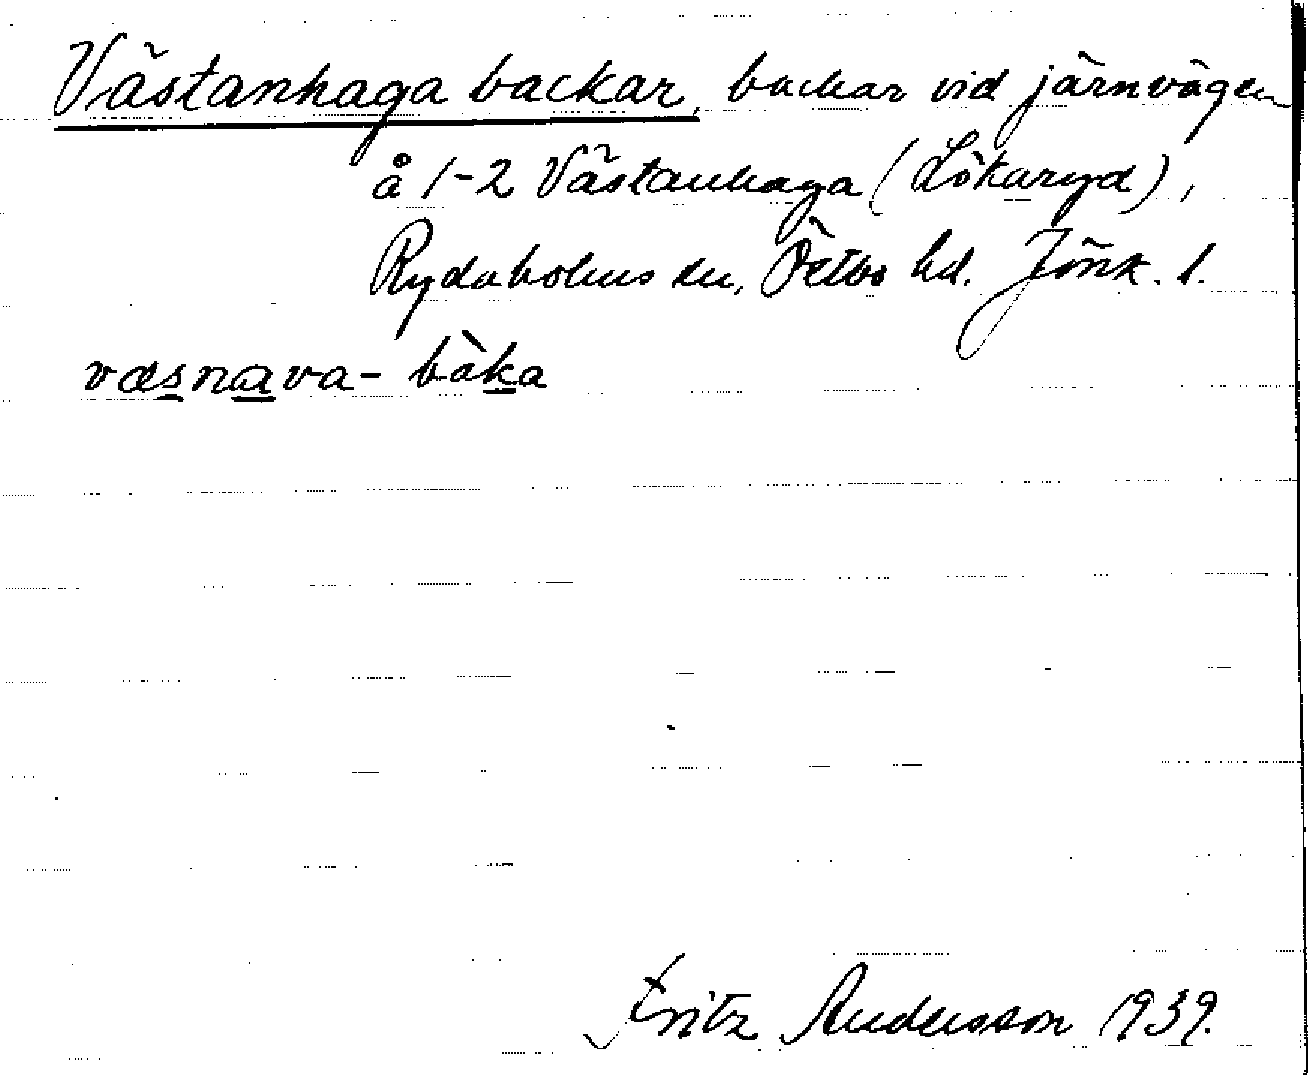 Västanhaga backar, backar vid järnvägen
å 1-2 Västanhaga (Lökaryd),
Rydaholms sn, Östbo hd. Jönk. l.
væsnava- bàka
Fritz Andersson 1939.